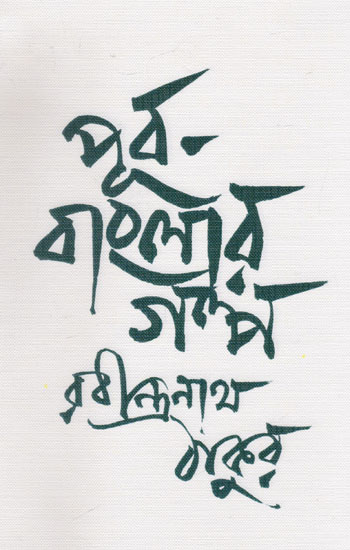 পূর্ব-
বাংলার
গল্প
রবীন্দ্রনাথ
ঠাকুর